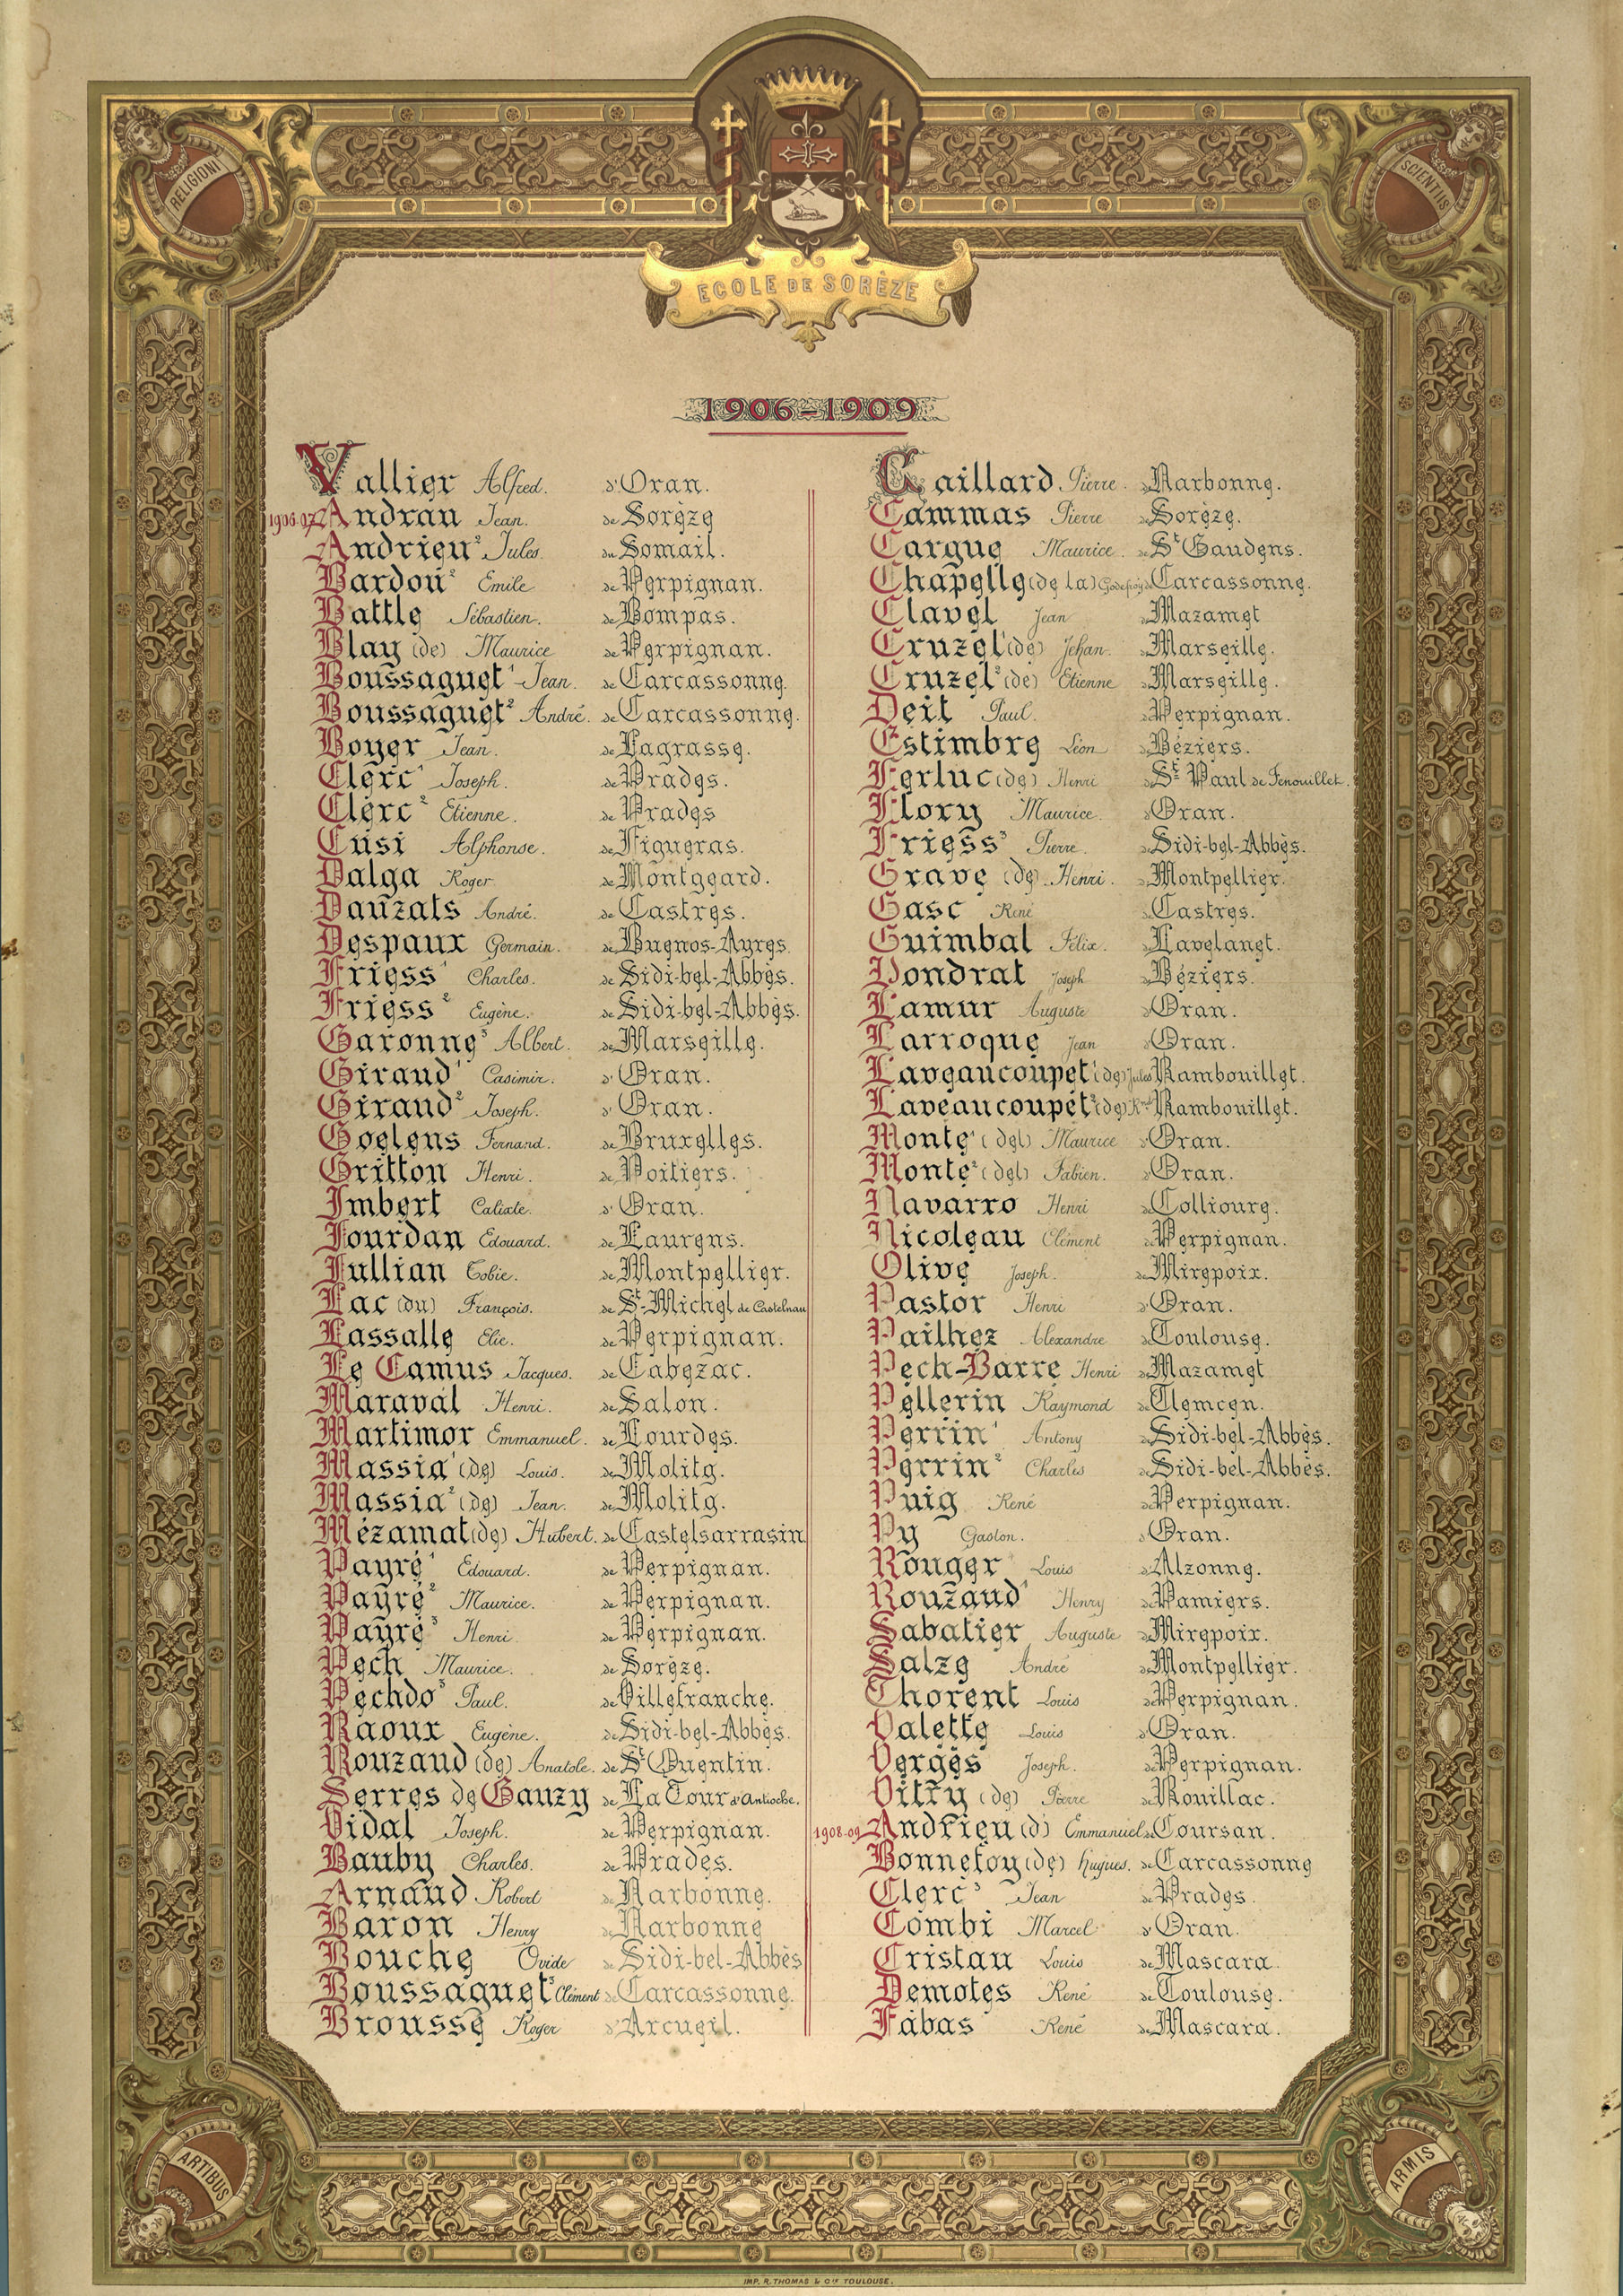 RELIGIONI
SCIENTIIS
ECOLE DE SORÈZE
1906-1909
Vallier Alfred. d'Oran.
1906-07 Andrau Jean. de Sorèze
Andrieu² Jules. du Somail.
Bardou² Emile de Perpignan.
Battle Sébastien. de Bompas.
Blay (de) Maurice de Perpignan.
Boussaguet¹ Jean. de Carcassonne.
Boussaguet² André. de Carcassonne.
Boyer Jean. de Lagrasse.
Clerc¹ Joseph. de Prades.
Clerc² Etienne. de Prades
Cusi Alphonse. de Figueras.
Dalga Roger de Montgeard.
Dauzats André. de Castres.
Despaux Germain. de Buenos-Ayres.
Friess¹ Charles. de Sidi-bel-Abbès.
Friess² Eugène. de Sidi-bel-Abbès.
Garonne³ Albert. de Marseille.
Giraud¹ Casimir. d'Oran.
Giraud² Joseph. d'Oran.
Goelens Fernand. de Bruxelles.
Gritton Henri. de Poitiers.
Imbert Calixte. d'Oran.
Jourdan Edouard. de Laurens.
Jullian Tobie. de Montpellier.
Lac (du) François. de St-Michel de Castelnau
Lassalle Elie. de Perpignan.
Le Camus Jacques. de Cabezac.
Maraval Henri. de Salon.
Martimor Emmanuel. de Lourdes.
Massia¹ (de) Louis. de Molitg.
Massia² (de) Jean. de Molitg.
Mézamat (de) Hubert. de Castelsarrasin
Payré¹ Edouard. de Perpignan.
Payré² Maurice. de Perpignan.
Payré³ Henri. de Perpignan.
Pech Maurice. de Sorèze.
Pechdo³ Paul. de Villefranche.
Raoux Eugène. de Sidi-bel-Abbès.
Rouzaud (de) Anatole. de St Quentin.
Serres de Gauzy de La Tour d'Antioche.
Vidal Joseph. de Perpignan.
Bauby Charles. de Prades.
Arnaud Robert de Narbonne.
Baron Henry de Narbonne
Bouche Ovide de Sidi-bel-Abbès
Boussaguet³ Clément de Carcassonne.
Brousse Roger d'Arcueil.
Gaillard Pierre. de Narbonne.
Cammas Pierre de Sorèze.
Cargue Maurice. de St Gaudens.
Chapelle (de la) Godefroy de Carcassonne.
Clavel Jean de Mazamet
Cruzel¹ (de) Jehan. de Marseille.
Cruzel² (de) Etienne de Marseille.
Deit Paul. de Perpignan.
Estimbre Léon de Béziers.
Ferluc (de) Henri de St Paul de Fenouillet.
Flory Maurice. d'Oran.
Friess³ Pierre. de Sidi-bel-Abbès.
Grave (de) Henri. de Montpellier.
Gasc René de Castres.
Guimbal Félix. de Lavelanet.
Pondrat Joseph de Béziers.
Lamur Auguste d'Oran.
Larroque Jean d'Oran.
Laveaucoupet¹ (de) Jules de Rambouillet.
Laveaucoupet² (de) de Rambouillet.
Monte¹ (del) Maurice d'Oran.
Monte² (del) Fabien. d'Oran.
Navarro Henri de Collioure.
Nicoleau Clément de Perpignan.
Olive Joseph. de Mirepoix.
Pastor Henri d'Oran.
Pailhez Alexandre de Toulouse.
Pech-Barre Henri de Mazamet
Pellerin Raymond de Tlemcen.
Perrin¹ Antony de Sidi-bel-Abbès.
Perrin² Charles de Sidi-bel-Abbès.
Puig René de Perpignan.
Py Gaston. d'Oran.
Rouger Louis d'Alzonne.
Rouzaud¹ Henry de Pamiers.
Sabatier Auguste de Mirepoix.
Salze André de Montpellier.
Thorent Louis de Perpignan.
Valette Louis d'Oran.
Vergès Joseph. de Perpignan.
Vitry (de) Pierre de Rouillac.
1908-09 Andrieu (d') Emmanuel de Coursan.
Bonnefoy (de) Hugues. de Carcassonne
Clerc³ Jean de Prades.
Combi Marcel d'Oran.
Cristau Louis de Mascara.
Demotes René de Toulouse.
Fabas René de Mascara.
ARTIBUS
ARMIS
IMP. R. THOMAS & Cie TOULOUSE.